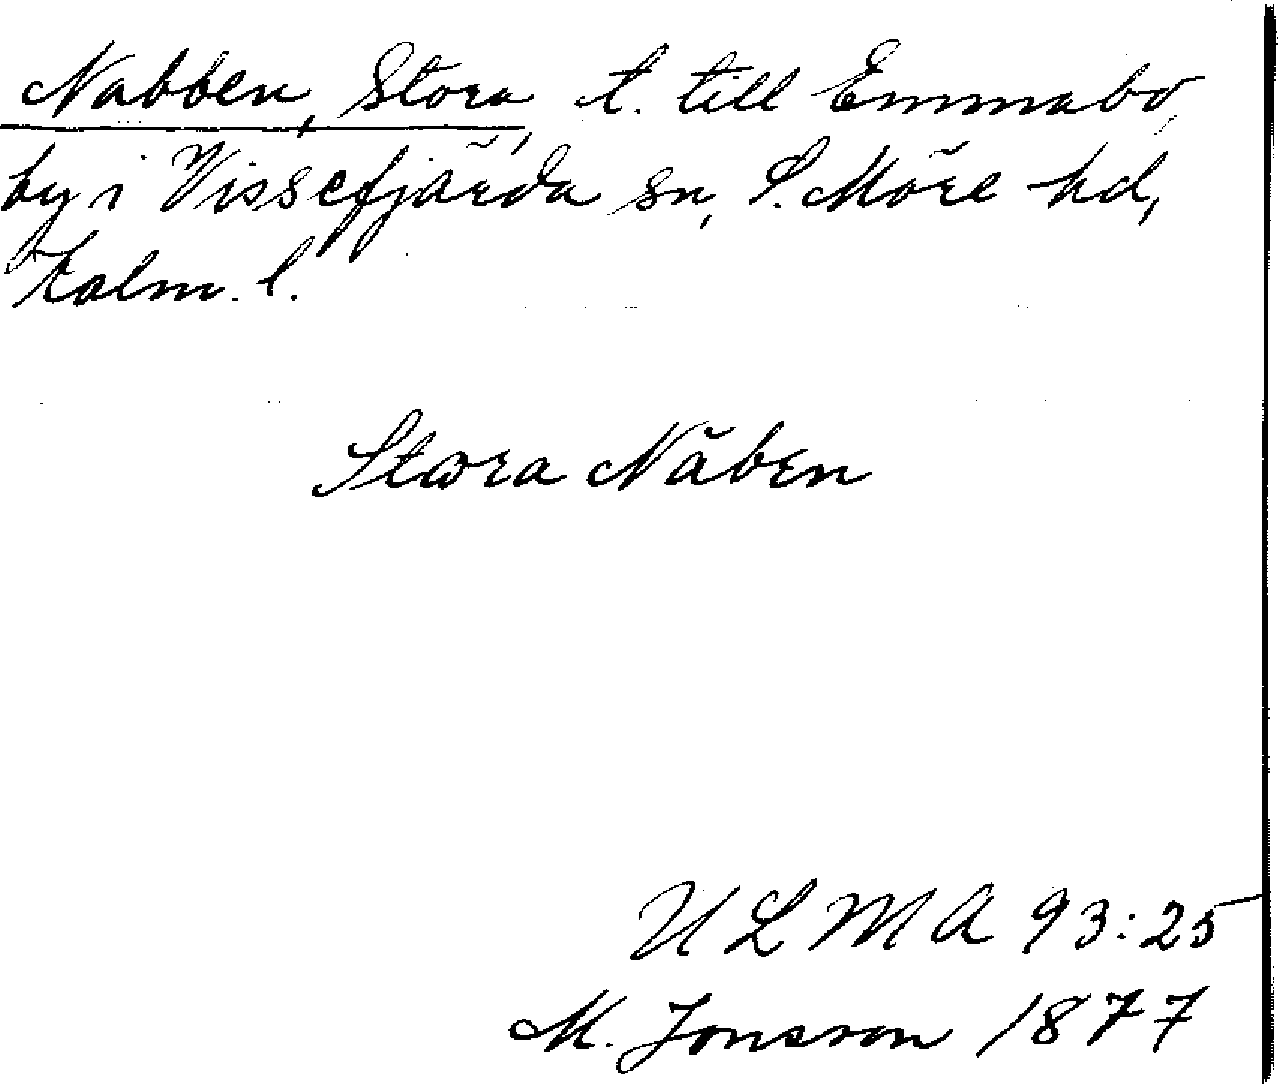 Nabben, Stora, t. till Emmabo,
by i Vissefjärda sn, S. Möre hd,
Kalm. l.
Stora Năben
ULMA 93:25
M. Jonsson 1877